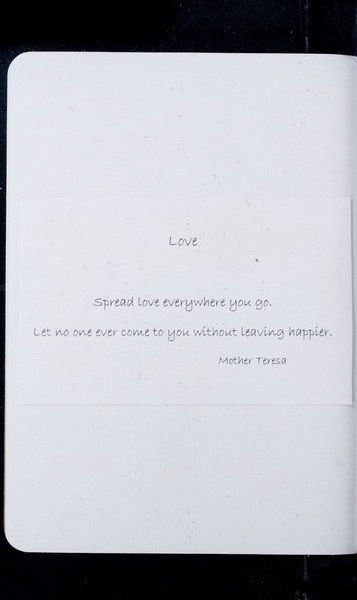 Love
Spread love everywhere you go.
Let no one ever come to you without leaving happier.
Mother Teresa